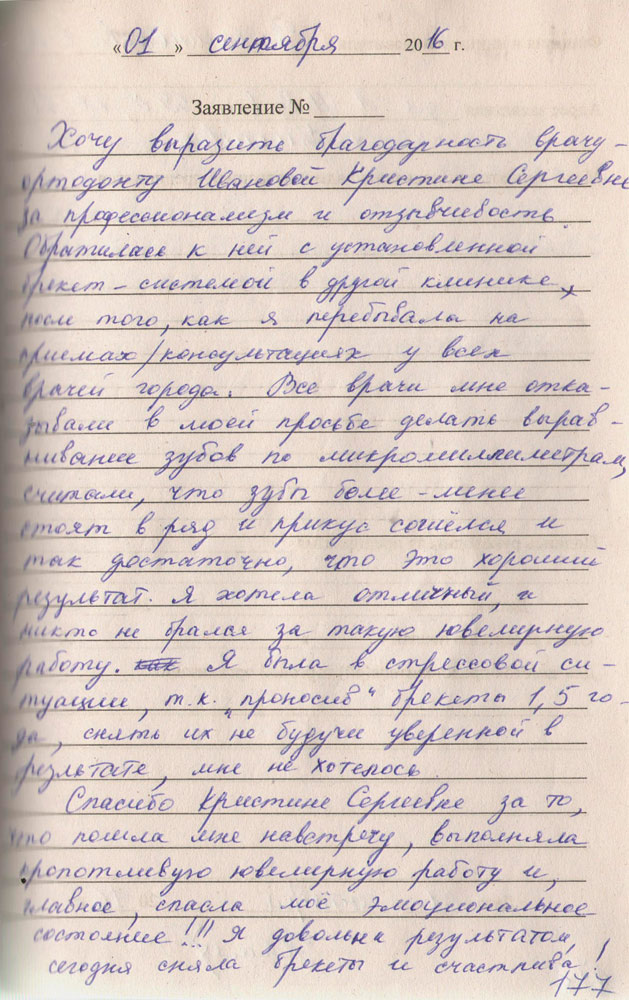 «01» сентября 2016 г.
Заявление №
Хочу выразить благодарность врачу-
ортодонту Ивановой Кристине Сергеевне
за профессионализм и отзывчивость.
Обратилась к ней с установленной
брекет-системой в другой клинике,
после того, как я перебывала на
приемах/консультациях у всех
врачей города. Все врачи мне отка-
зывали в моей просьбе делать вырав-
нивание зубов по микромиллиметрам,
считали, что зубы более-менее
стоят в ряд и прикус сошёлся и
так достаточно, что это хороший
результат. Я хотела отличный, и
никто не брался за такую ювелирную
работу. Я была в стрессовой си-
туации, т.к. „проносив" брекеты 1,5 го-
да, снять их не будучи уверенной в
результате, мне не хотелось.
Спасибо Кристине Сергеевне за то,
что пошла мне навстречу, выполняла
кропотливую ювелирную работу и,
главное, спасла моё эмоциональное
состояние!!! Я довольна результатом,
сегодня сняла брекеты и счастлива!
177